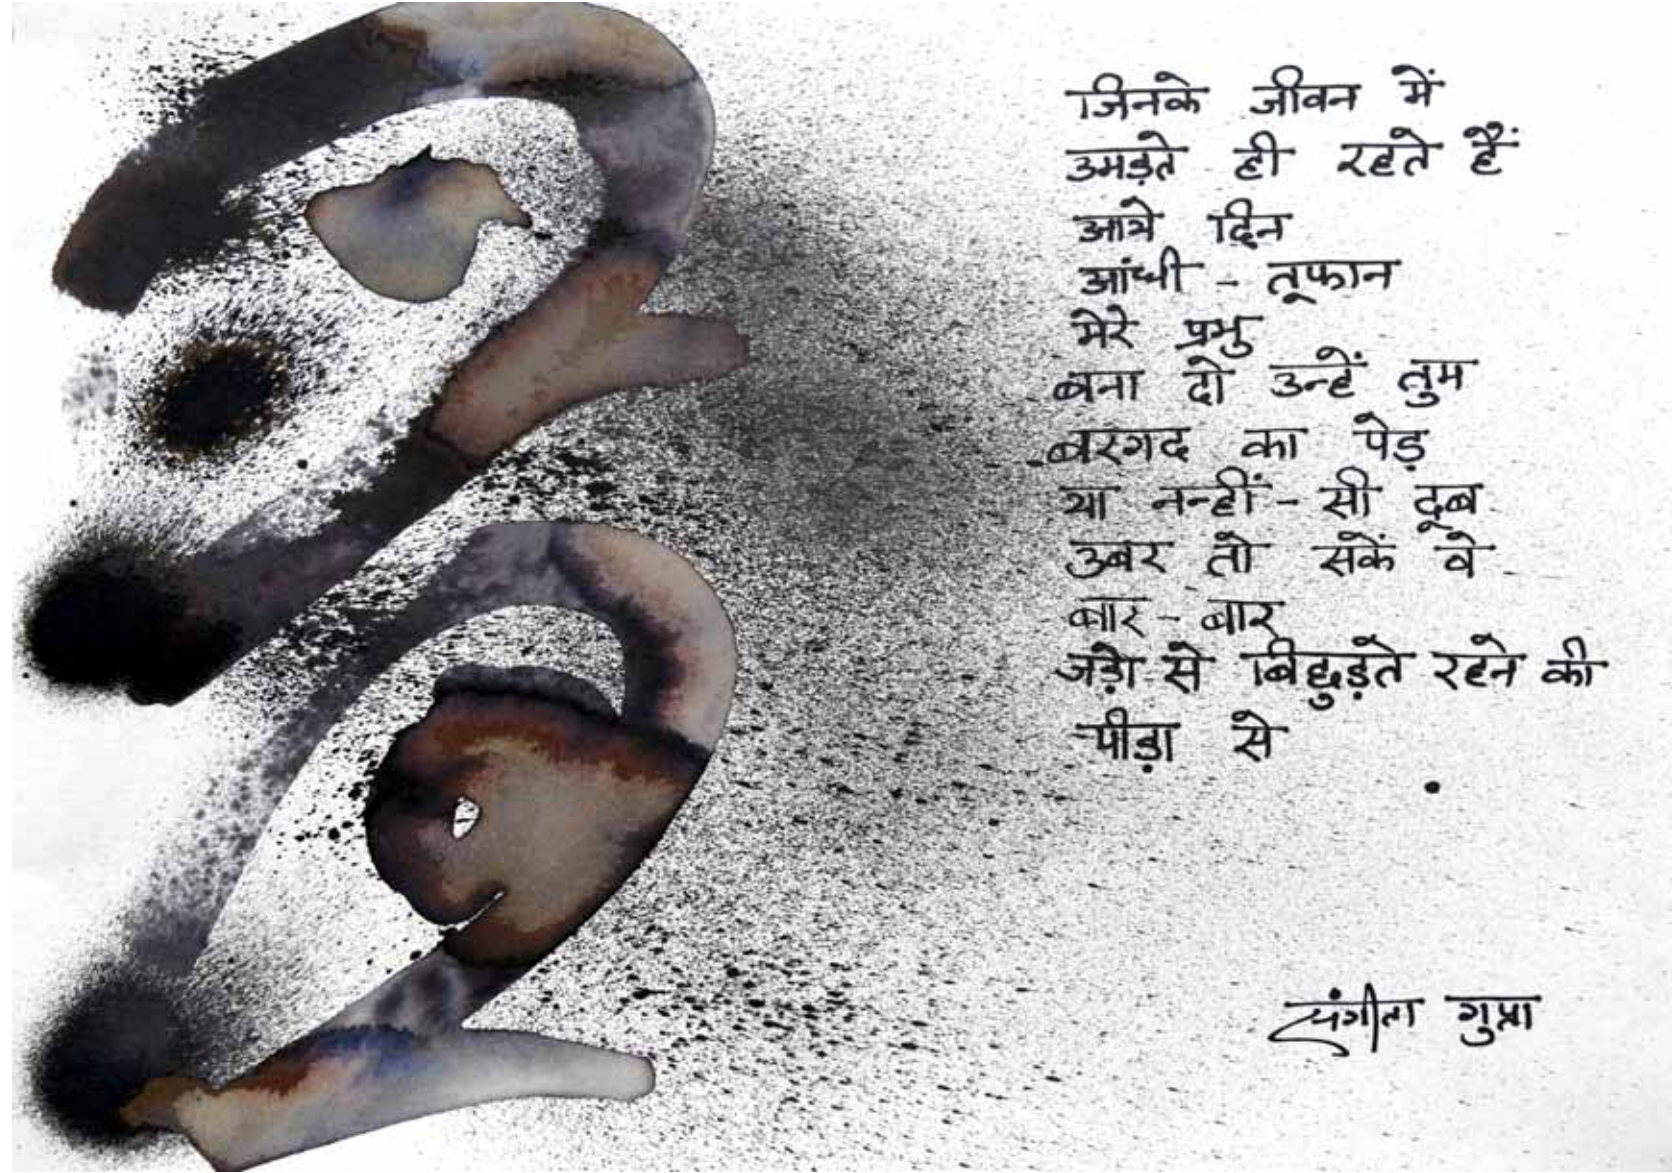 जिनके जीवन में
उमड़ते ही रहते हैं
आये दिन
आंधी - तूफान
मेरे प्रभु
बना दो उन्हें तुम
बरगद का पेड़
या नन्हीं - सी दूब
उबर तो सकें वे
बार - बार
जड़ो से बिछुड़ते रहने की
पीड़ा से
संगीता गुप्ता